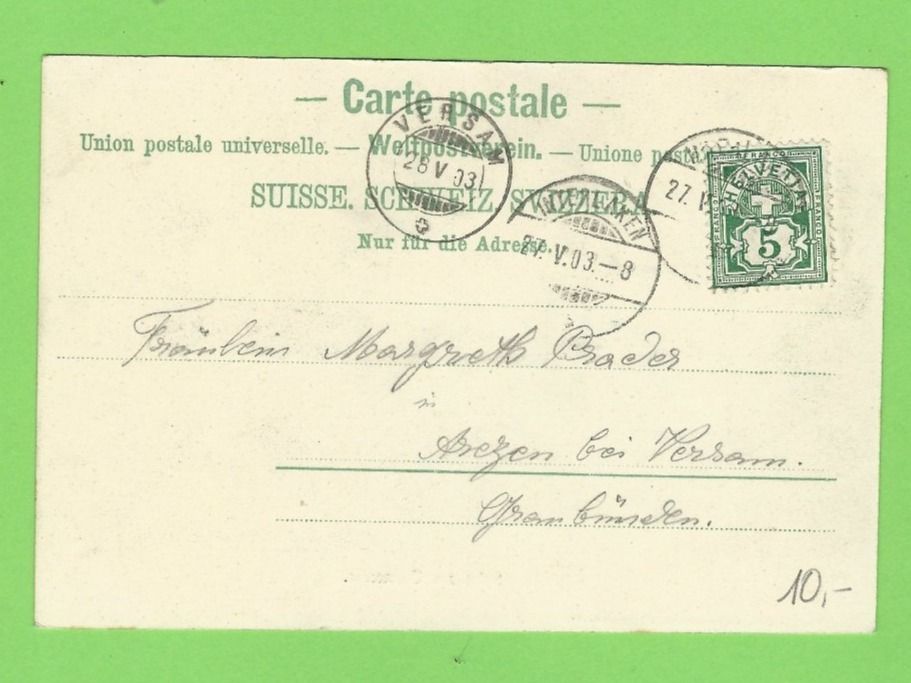 — Carte postale —
Union postale universelle. — Weltpostverein. — Unione
SUISSE. SCHWEIZ. SVIZZERA
Nur für die Adresse.
VERSAM
28 V 03
INTERLAKEN
27. V. 03. — 8
27. V
FRANCO
HELVETIA
FRANCO
FRANCO
5
Fräulein Margreth Prader
in
Arezen bei Versam.
Graubünden.
10,-